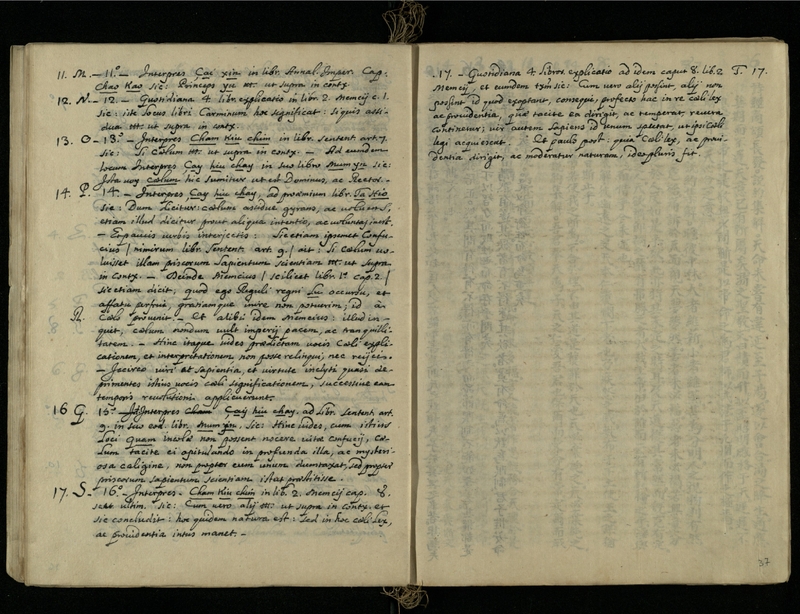 11. M. - 11.° - Interpres Cai xin in libr. Annal. Imper. Cap.
Chao Kao sic: Princeps yu etc. ut supra in contx.
12. N. - 12. - Quotidiana 4 libr. explicatio in libr. 2. Memcij c. 1.
sic: iste locus libri Carminum hoc significat: siquis assi-
dua etc. ut supra in contx.
13. O - 13.° - Interpres Cham Kiu chim in libr. sentent. art. 7.
sic: Si Cælum etc. ut supra in contx. - Ad eundem
locum Interpres Cay hiu chay in suo libro mum yn sic:
Ista vox cælum hic sumitur ut est Dominus, ac Rector.
14. P. 14. - Interpres Cay hiu chay, ad proœmium libr. Ta Hio
sic: Dum dicitur: cælum assidue gyrans, ac volvens,
etiam illud dicitur prout aliqua intentio, ac voluntas
- Et paucis verbis interjectis: Sic etiam ipsemet Confu-
cius / nimirum libr. sentent. art. 9. / ait: Si Cælum vo-
luisset illam priscorum sapientum scientiam etc. ut supra
in contx. - Deinde Memcius / scilicet libr. 1.° cap. 2. /
sic etiam dicit, quod ego Reguli regni Lu occursu, et
affatu perfrui, gratiamque inire non potuerim; id à
R. Cælo provenit. - Et alibi idem Memcius: illud in-
quit, cælum nondum vult imperij pacem, ac tranquilli-
tatem. - Hinc itaque vides prædictam vocis Cæli expli-
cationem, et interpretationem non posse relinqui, nec reijci.
- Idcirco viri et sapientia, et virtute inclyti quasi de-
primentes istius vocis cæli significationem, successivæ
temporis revolutioni applicuerunt.
16 Q. 15.° - Interpres Cay hiu chay. ad libr. sentent. art.
9. in suo eod. libr. mum yn. sic: Hinc vides, cum istius
loci Quam incolæ non possent nocere vitæ confucij, Cæ-
lum tacite ei opitulando in profunda illa, ac mysteri-
osa caligine, non propter eum unum dumtaxat, sed propter
priscorum sapientum scientiam istas præstitisse.
17. S. - 16.° - Interpres. Cham Kiu chim in lib. 2. Memcij cap. 8.
sic: Cum vero alij etc. ut supra in contx. et
sic concludit: hoc quidem natura est: sed in hoc cæli lex,
ac providentia intus manet. -
17. - Quotidiana 4 libror. explicatio ad idem caput 8. lib. 2 T. 17.
Memcij, et eumdem sic: Cum vero alij possint, alij non
possint id quod exoptant, consequi, profecto hac in re cæli lex
ac providentia, quæ tacite ea dirigit, ac temperat, revera
continetur; vir autem Sapiens id unum spectat, ut ipsi cæli
legi acquiescat. - Et paulo post: quia Cæli lex, ac provi-
dentia dirigit, ac moderatur naturam, ideo pluris fit.
37